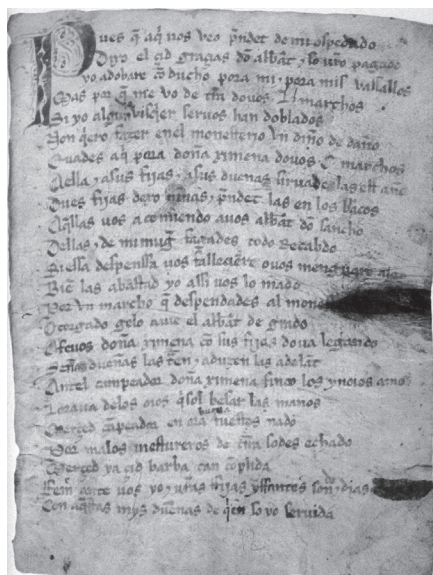 Pues q̃ aq̃ nos veo p̃ndet de mi ospedado
Dixo el çid graçias dõ abbat ⁊ so ũro pagado
yo adobare cõ ducho pora mi ⁊ pora mis vassallos
Mas por q̃ me vo de tr̃ra douos .L. marchos
Si yo algun visq̃ier seruos han doblados
Non q̃ero fazer en el monesterio vn diño de daño
Euades aq̃ pora doña ximena douos .C. marchos
Aella ⁊ asus fijas ⁊ asus dueñas siruades las est año
Dues fijas dexo niñas ⁊ p̃ndet las en los braços
Aq̃llas vos acomiendo auos abbat dõ sancho
Dellas ⁊ de mi mug̃ fagades todo recabdo
Si essa despenssa vos falleçiere o uos menguare algo
Biẽ las abastad yo assi vos lo mãdo
Por vn marcho q̃ despendades al mone
Otorgado gelo auie el abbat de grado
Afeuos doña ximena cõ sus fijas doua legando
Señas dueñas las traẽ ⁊ aduzen las adelãt
Antel campeador doña ximena finco los ynoios amos
Loraua delos oios q̃sol besar las manos
Merçed cãpeador en ora buena fuestes nado
Por malos mestureros de tr̃ra sodes echado
Merçed ya çid barba tan cõplida
Fem ante uos yo ⁊ ũras fijas yffantes son ⁊ dias
Con aq̃stas mys dueñas de q̃en so yo seruida